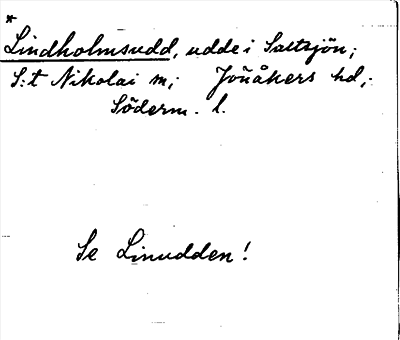 *
Lindholmsudd, udde i Saltsjön;
S:t Nikolai m; Jönåkers hd;
Söderm. l.
Se Linudden!